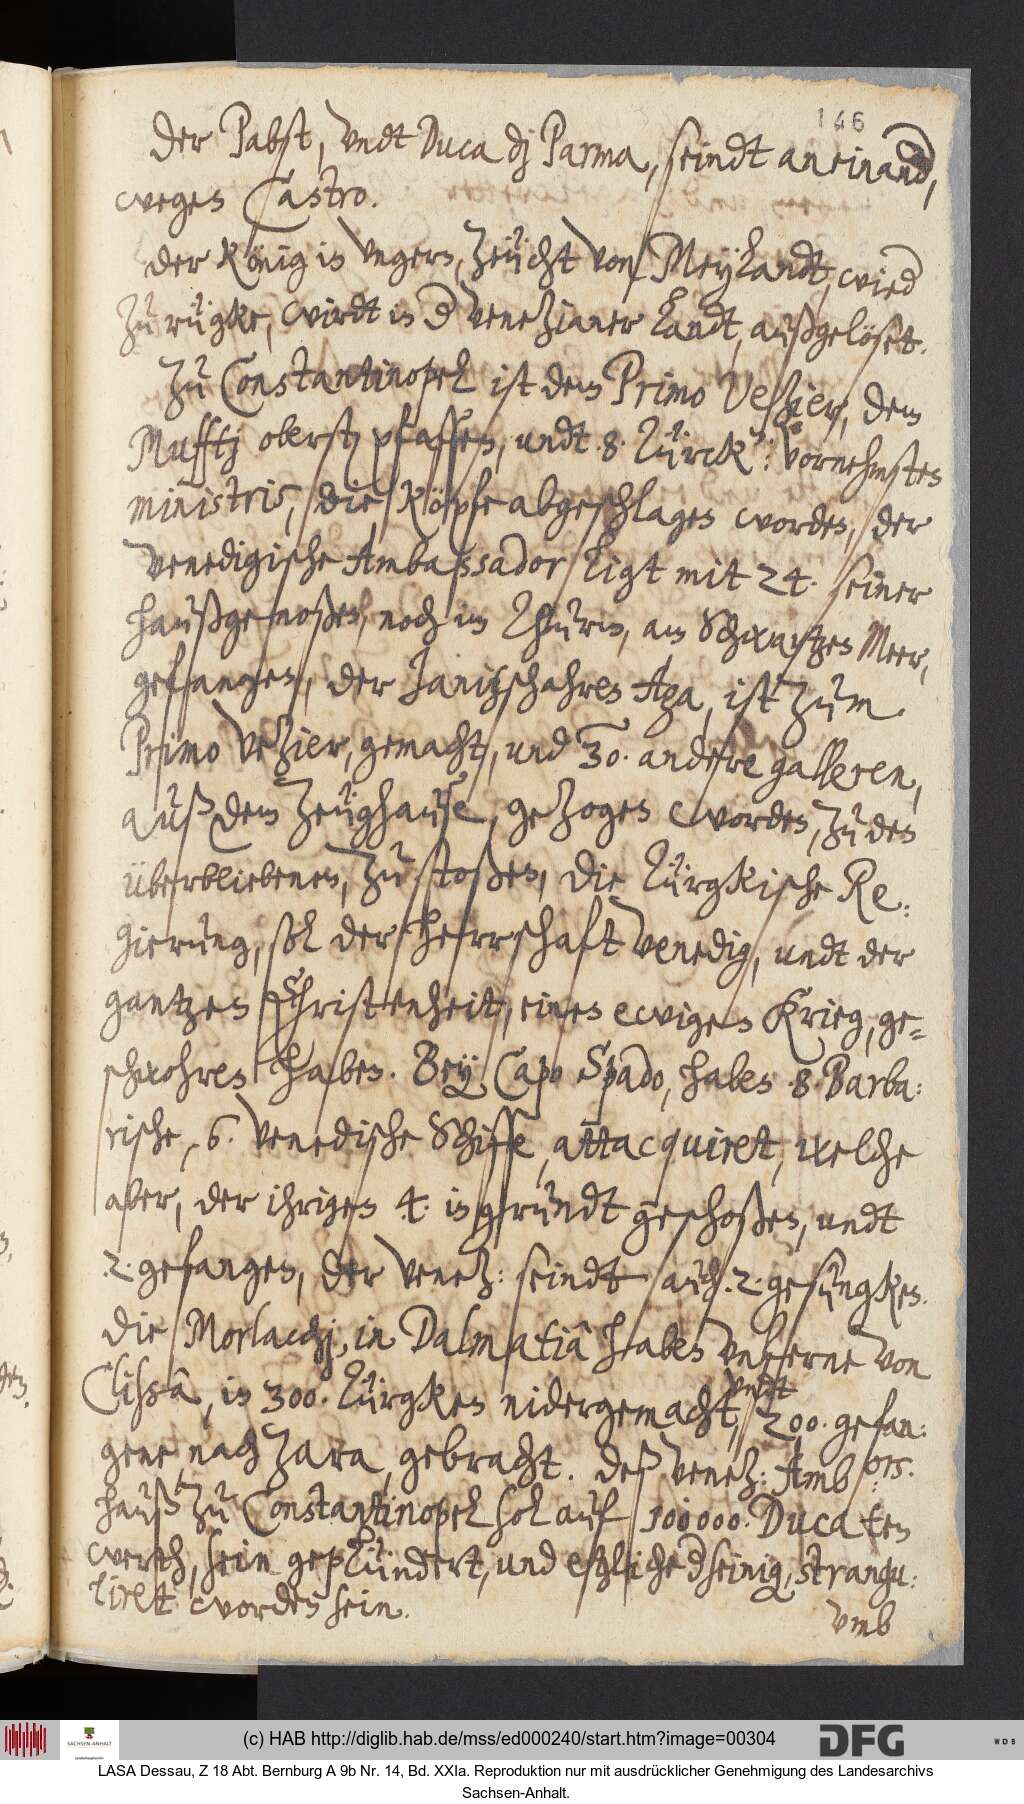 146
der Pabst, vndt Duca dj Parma, seindt aneinand,
wegen Castro.
der König in vngern, zeücht von Meylandt, wied
zurügke, wirdt in d Venezianer Landt, außgelöset.
Zu Constantinopel ist dem Primo Vezier, dem
Mufftj obersten pfaffen, undt 8. Türck: vornehmsten
ministris, die Köpfe abgeschlagen worden, der
venedigische Ambassador ligt mit 24. seiner
haußgenoßen, noch im Thurm, am Schwartzen Meer,
gefangen, der Janitzschahren Aga, ist zum
Primo Vezier, gemacht, und 30. andere galleren,
auß dem Zeüghause, gezogen worden, zu den
überbliebenen, zu stoßen, die Türgkische Re:
gierung, sol der Herrschaft Venedig, undt der
gantzen Christenheit, einen ewigen Krieg, ge=
schwohren haben. Bey Capo Spado, haben 8. Barba:
rische, 6. Venedische Schiffe, attacquiret, welche
aber, der ihrigen 4. in grundt geschoßen, undt
2. gefangen, der Venez: seindt auch 2. gesungken.
die Morlachj, in Dalmatiâ haben vnferne von
Clissâ, in 300. Türgken nidergemacht, vndt 200. gefan:
gene nach Zara, gebracht. deß Venez: Amb: ors.
hauß zu Constantinopel sol auf 100000. Ducaten
werth, sein geplündert, und etzliche d seinig, strangu:
liret worden sein.
vmb
(c) HAB http://diglib.hab.de/mss/ed000240/start.htm?image=00304
SACHSEN-ANHALT
DFG
WDB
LASA Dessau, Z 18 Abt. Bernburg A 9b Nr. 14, Bd. XXIa. Reproduktion nur mit ausdrücklicher Genehmigung des Landesarchivs
Sachsen-Anhalt.